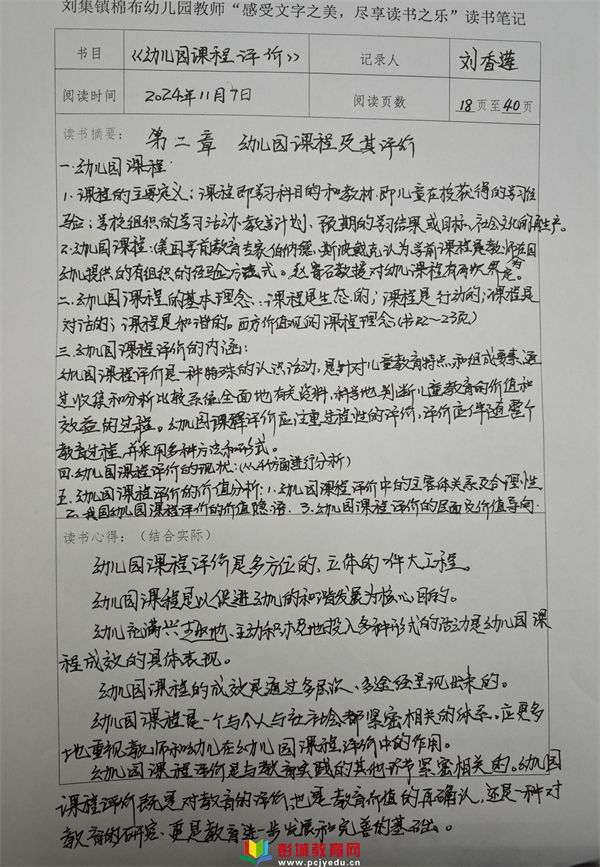 刘集镇棉布幼儿园教师“感受文字之美，尽享读书之乐”读书笔记
书目 《幼儿园课程评价》 记录人 刘香莲
阅读时间 2024年11月7日 阅读页数 18页至40页
读书摘要： 第二章 幼儿园课程及其评价
一.幼儿园课程.
1.课程的主要定义：课程即学习科目的和教材.即儿童在校获得的学习经
验；学校组织的学习活动.教学计划、预期的学习结果或目标、社会文化的再生产。
2.幼儿园课程：(美国学前教育专家伯纳德·斯波戴克认为学前课程是教师在园
幼儿提供的有组织的经验方式。赵寄石教授对幼儿课程有两次界定。
二、幼儿园课程的基本理念：课程是生态的；课程是行动的；课程是
对话的；课程是和谐的。西方价值观的课程理念(书22~23页)
三.幼儿园课程评价的内涵：
幼儿园课程评价是一种特殊的认识活动，是针对儿童教育特点和组成要素，通
过收集和分析比较系统全面地有关资料，科学地判断儿童教育的价值和
效益的过程。幼儿园课程评价应注重过程性的评价，评价应伴随整个
教育过程，并采用多种方法和形式。
四.幼儿园课程评价的现状：(从4方面进行分析)
五.幼儿园课程评价的价值分析：1.幼儿园课程评价中的主客体关系及合理性
2.我国幼儿园课程评价的价值隐语.3.幼儿园课程评价的层面及价值导向.
读书心得：（结合实际）
幼儿园课程评价是多方位的、立体的一件大工程。
幼儿园课程是以促进幼儿的和谐发展为核心目的。
幼儿充满兴趣地、主动积极地投入多种形式的活动是幼儿园课
程成效的具体表现。
幼儿园课程的成效是通过多层次、多途径呈现出来的。
幼儿园课程是一个与个人与社会都紧密相关的体系。应更多
地重视教师和幼儿在幼儿园课程评价中的作用。
幼儿园课程评价是与教育实践的其他环节紧密相关的。幼儿园
课程评价既是对教育的评价，也是教育价值的再确认，还是一种对
教育的研究，更是教育进一步发展和完善的基础。
彭城教育网
www.pcjyedu.cn